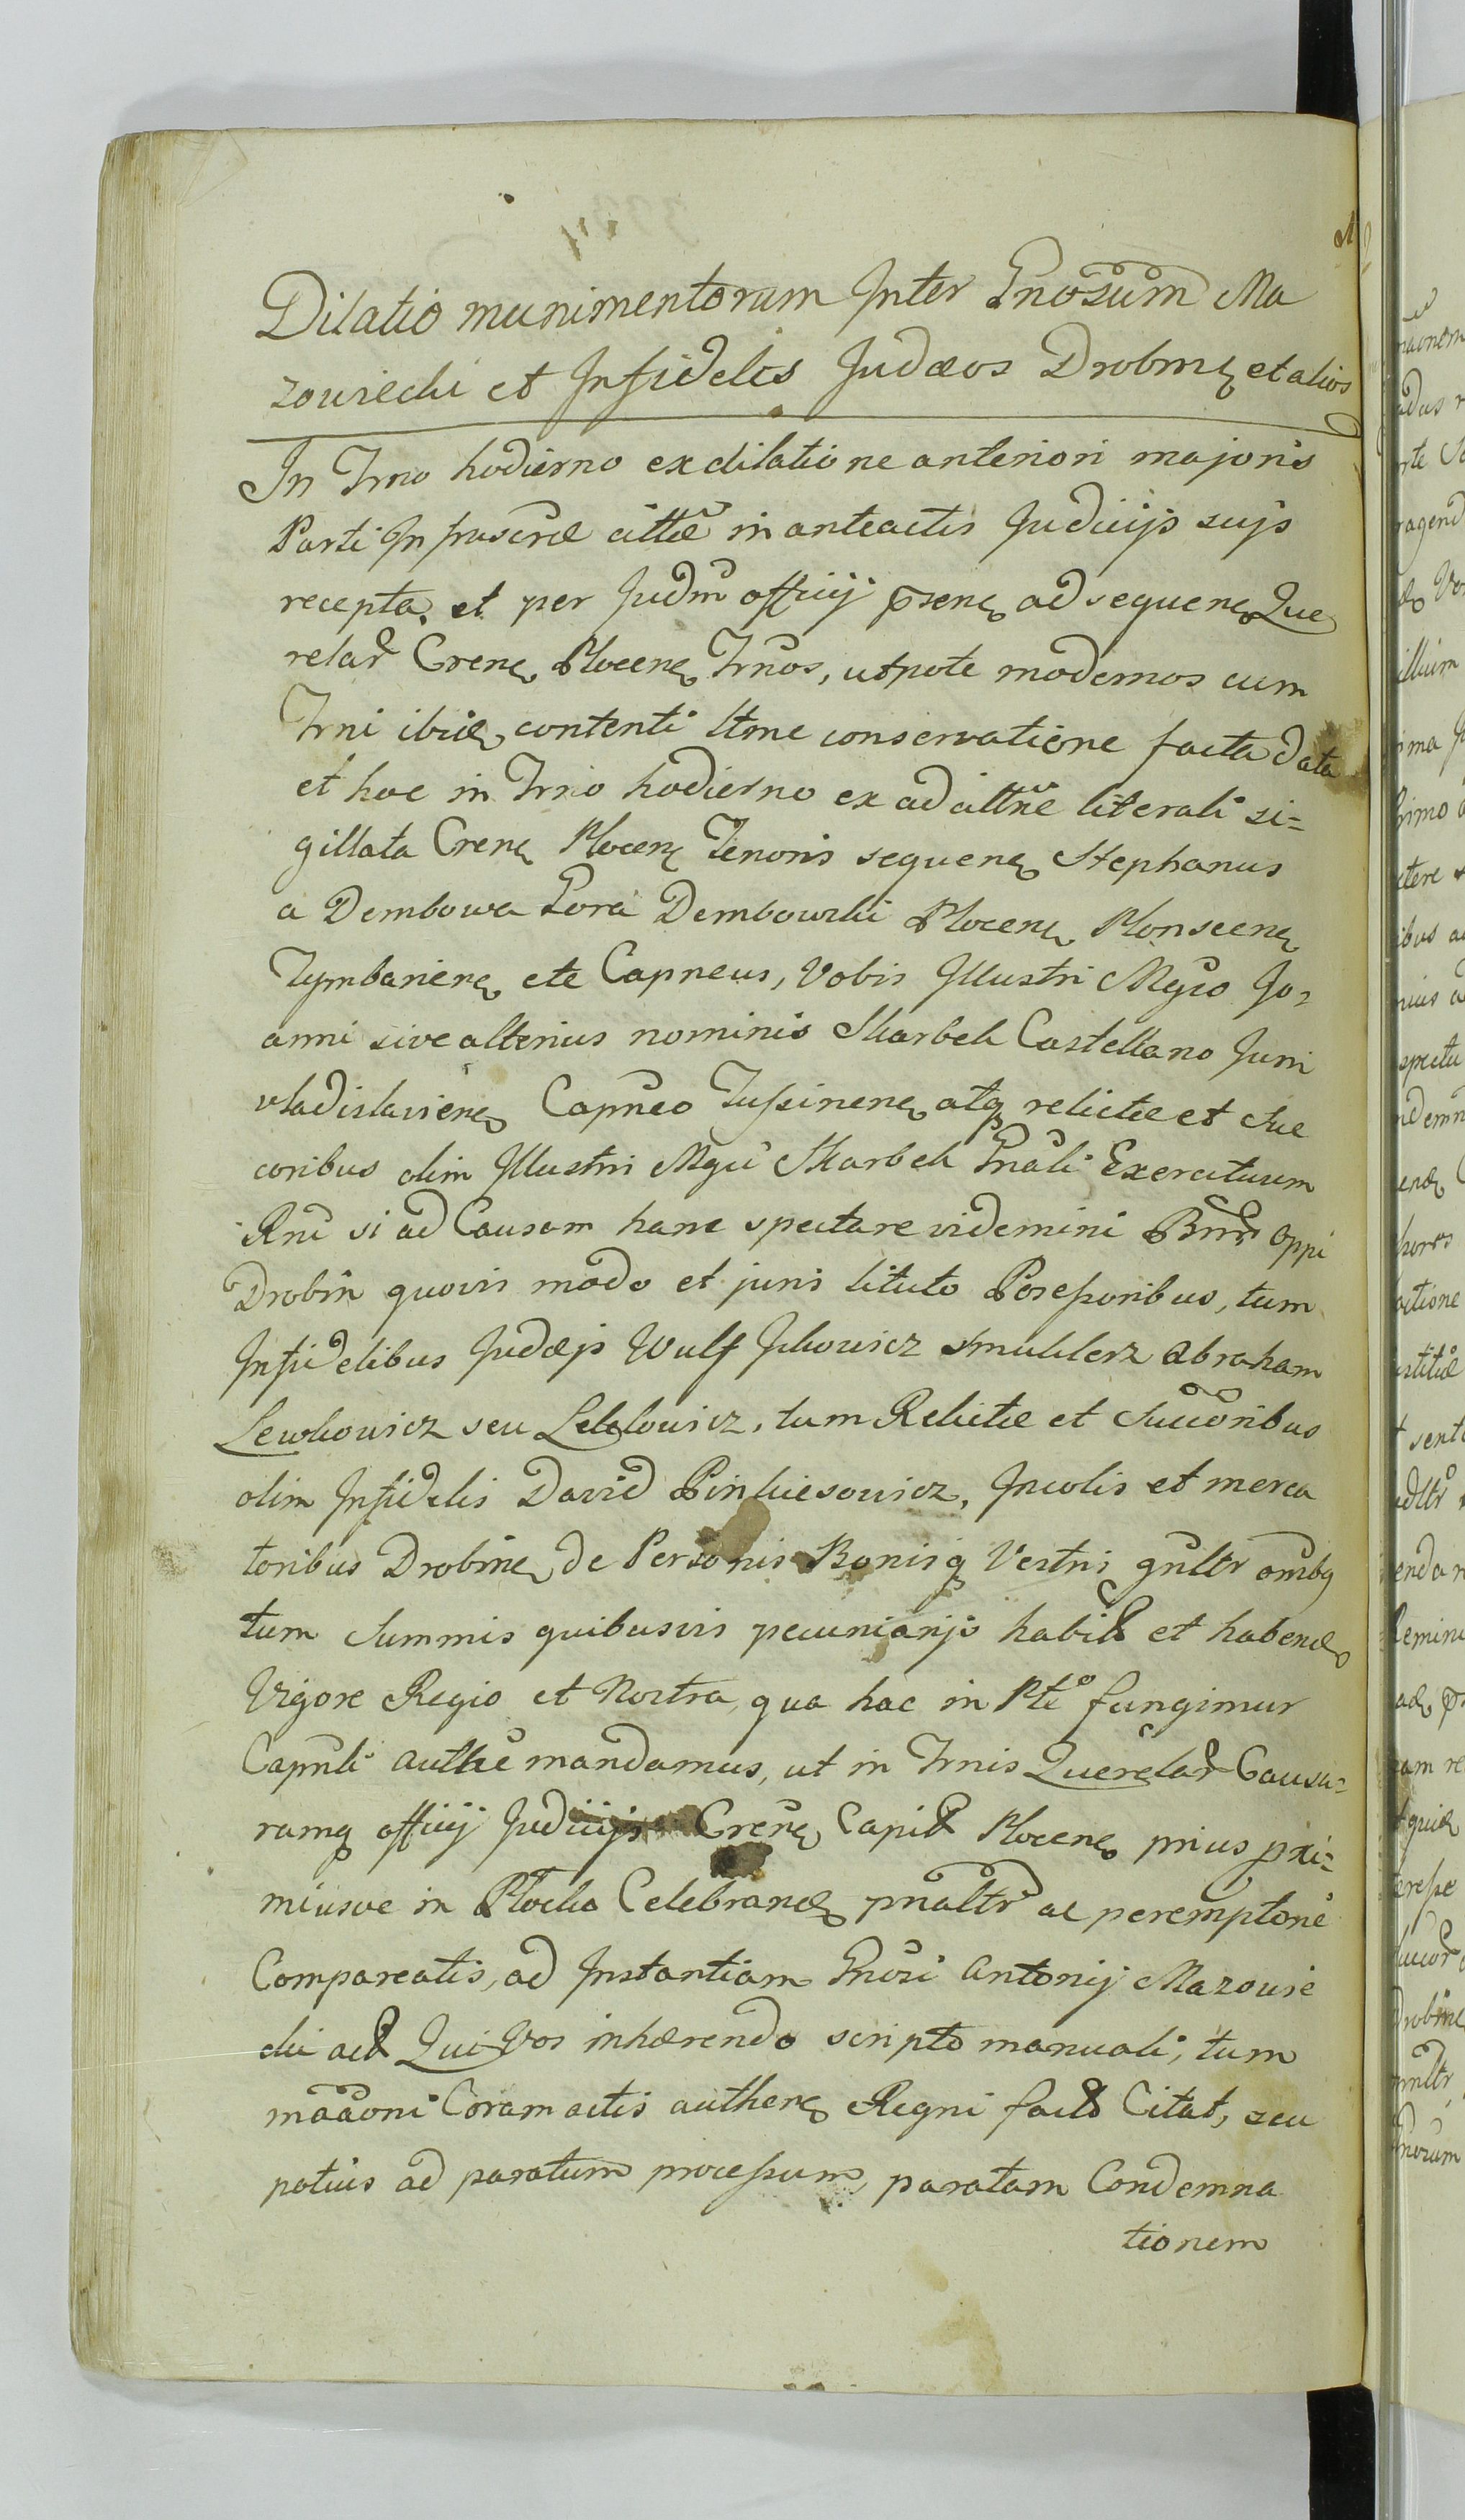 Dilatio munimentorum Inter Gnosum Ma
zowiecki et Infideles Judæos Drobinen et alios
In Trno hodierno ex dilatione anteriori majoris
Parti Infrascræ cittæ in anteactis Judicijs suis
recepta, et per Judm officij præsen ad sequen Que
relar Cren Plocen Trnos, utpote modernos cum
Trni ibid contenti ltme conservatione facta data
et hoc in Trno hodierno ex ad cittne literali si=
gillata Cren Plocen Tenoris sequen Stephanus
a Dembowa Gora Dembowski Plocen Plonscen
Tymbarien etc Capneus, Vobis Illustri Mgco Jo=
anni sive alterius nominis Skarbek Castellano Juni
vladislavien Capneo Tussinen atq relictæ et Suc
coribus olim Illustri Mgci Skarbek Gnali Exercituum
Rni si ad Causam hanc spectare videmini Bnr Oppi
Drobin quovis modo et juris titulo Possessoribus, tum
Infidelibus Judæis Wulf Jckowicz Smuklerz Abraham
Lewkowicz seu Lelelowicz, tum Relictæ et Succoribus
olim Infidelis David Pinkiesowicz, Incolis et merca
toribus Drobinen de Personis Bonisq Vestris gnltr omibq
tum Summis quibusvis pecuniarijs habit et habend
Vigore Regio et Nostra, qua hac in Pte fungimur
Capnli authe mandamus, ut in Trnis Querelar Causa=
rumq officij Judicijs Cren Capit Plocen prius pxi=
miusve in Plocko Celebrand pnaltr ac peremptorie
Compareatis, ad Instantiam Gnosi Antonij Mazowie
cki act Qui Vos inhærendo scripto manuali, tum
maaoni Coram actis authen Regni fact Citat, seu
potius ad paratum processum, paratam Condemna
tionem